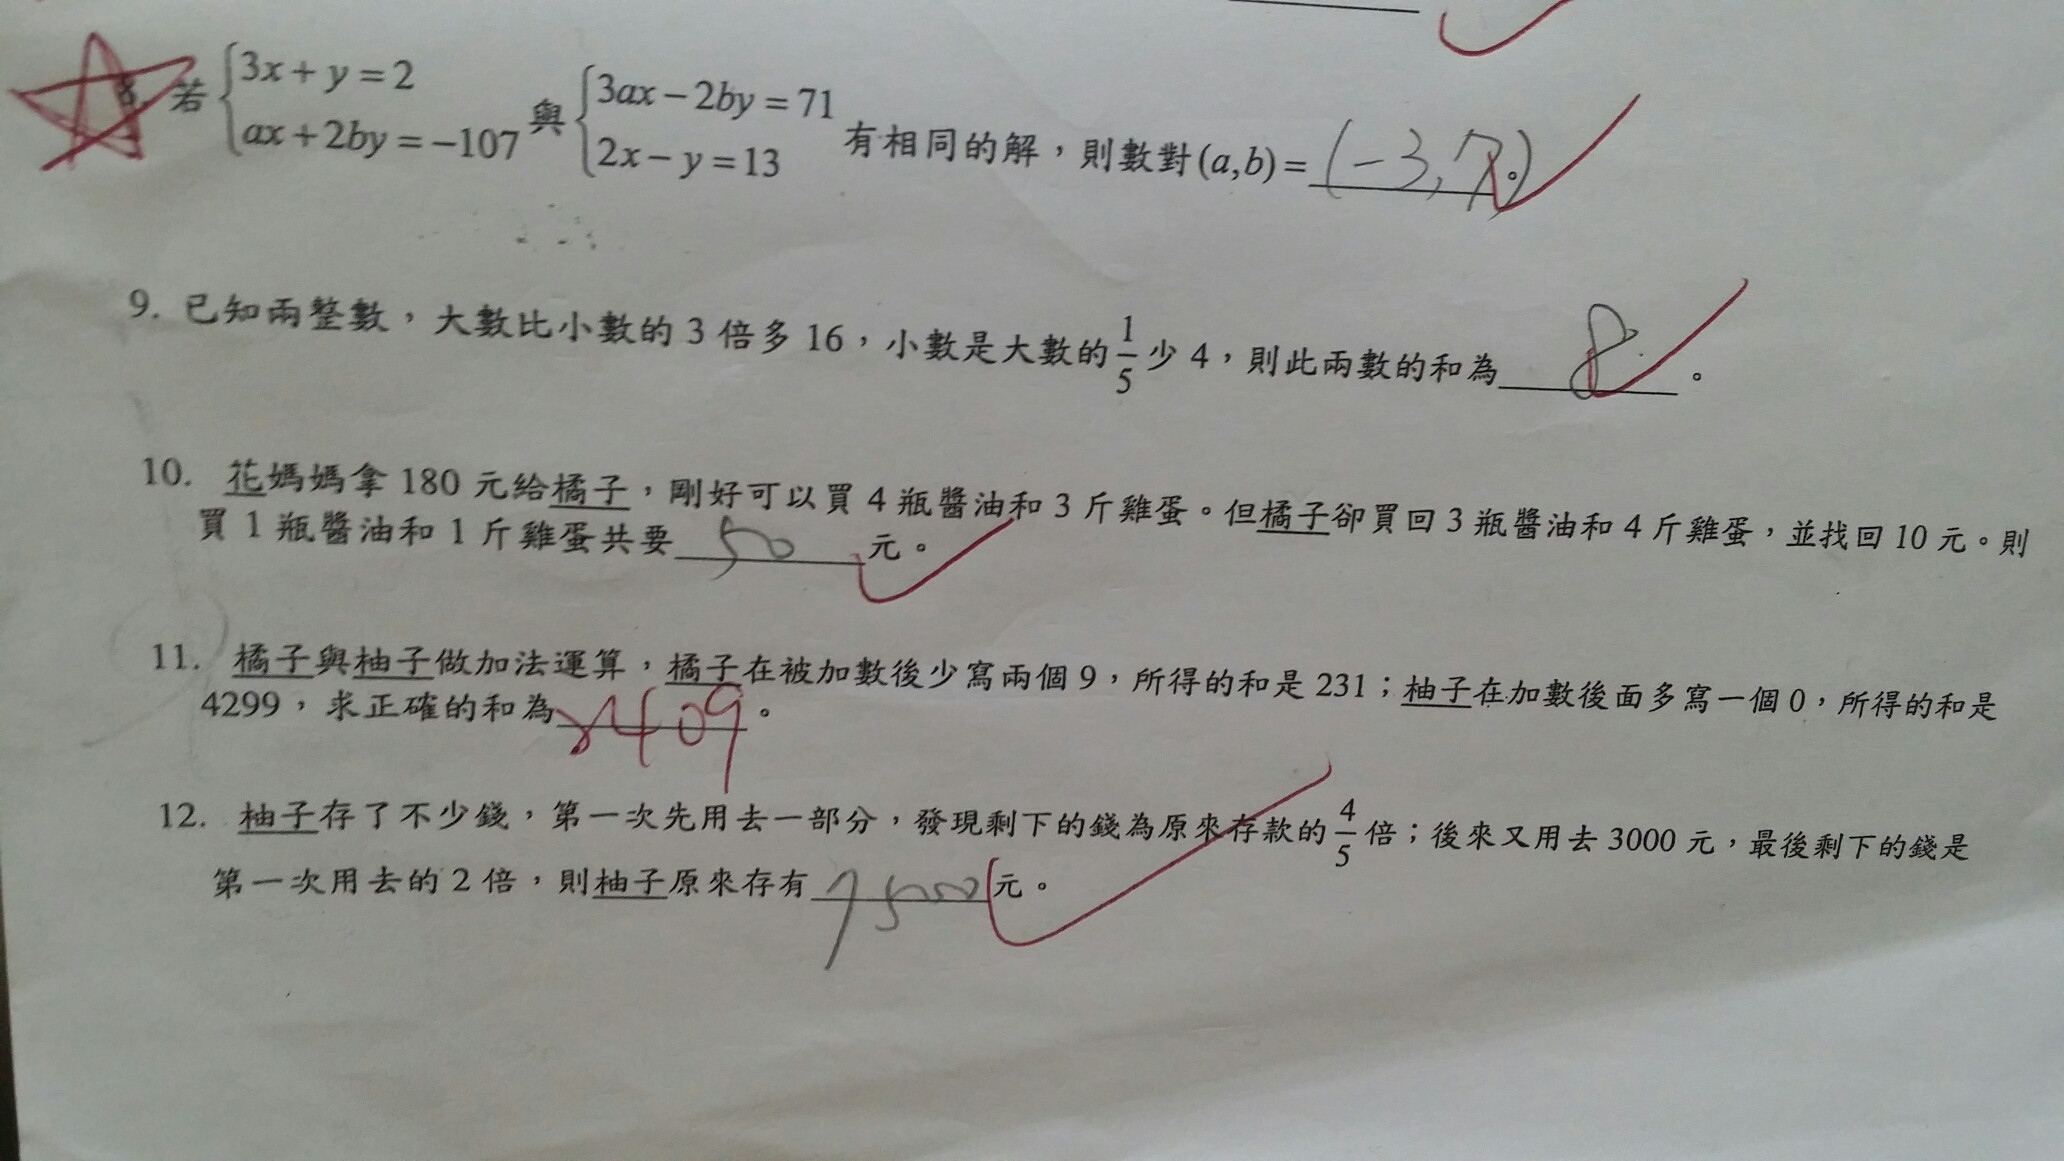 8. 若 { 3x + y = 2
ax + 2by = −107 與 { 3ax − 2by = 71
2x − y = 13 有相同的解，則數對(a,b) = (-3,7)。
9. 已知兩整數，大數比小數的 3 倍多 16，小數是大數的 1/5 少 4，則此兩數的和為 8 。
10. 花媽媽拿 180 元給橘子，剛好可以買 4 瓶醬油和 3 斤雞蛋。但橘子卻買回 3 瓶醬油和 4 斤雞蛋，並找回 10 元。則
買 1 瓶醬油和 1 斤雞蛋共要 50 元。
11. 橘子與柚子做加法運算，橘子在被加數後少寫兩個 9，所得的和是 231；柚子在加數後面多寫一個 0，所得的和是
4299，求正確的和為 409 。
12. 柚子存了不少錢，第一次先用去一部分，發現剩下的錢為原來存款的 4/5 倍；後來又用去 3000 元，最後剩下的錢是
第一次用去的 2 倍，則柚子原來存有 7500 元。